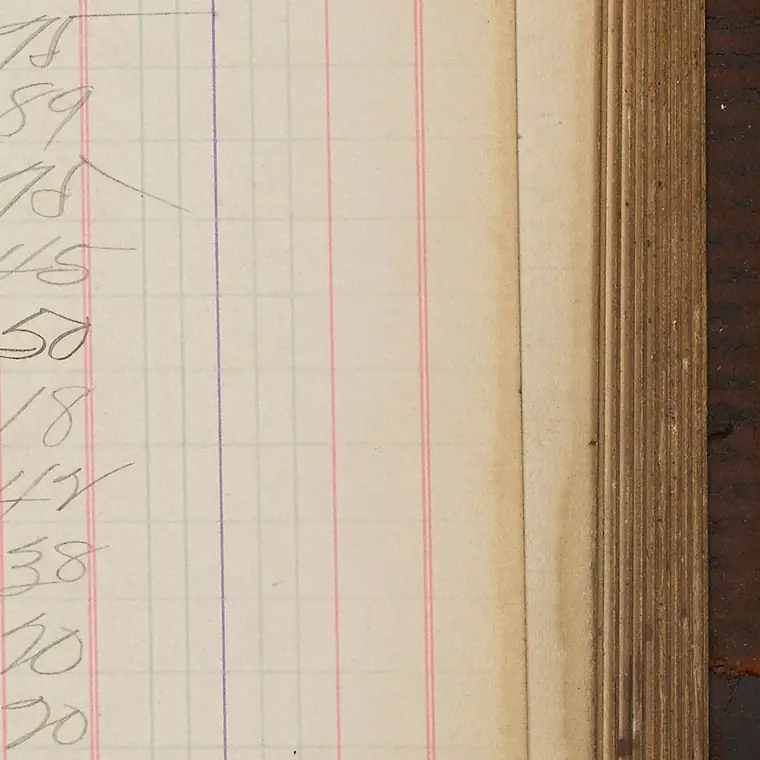 75
89
75
45
50
18
42
38
70
20